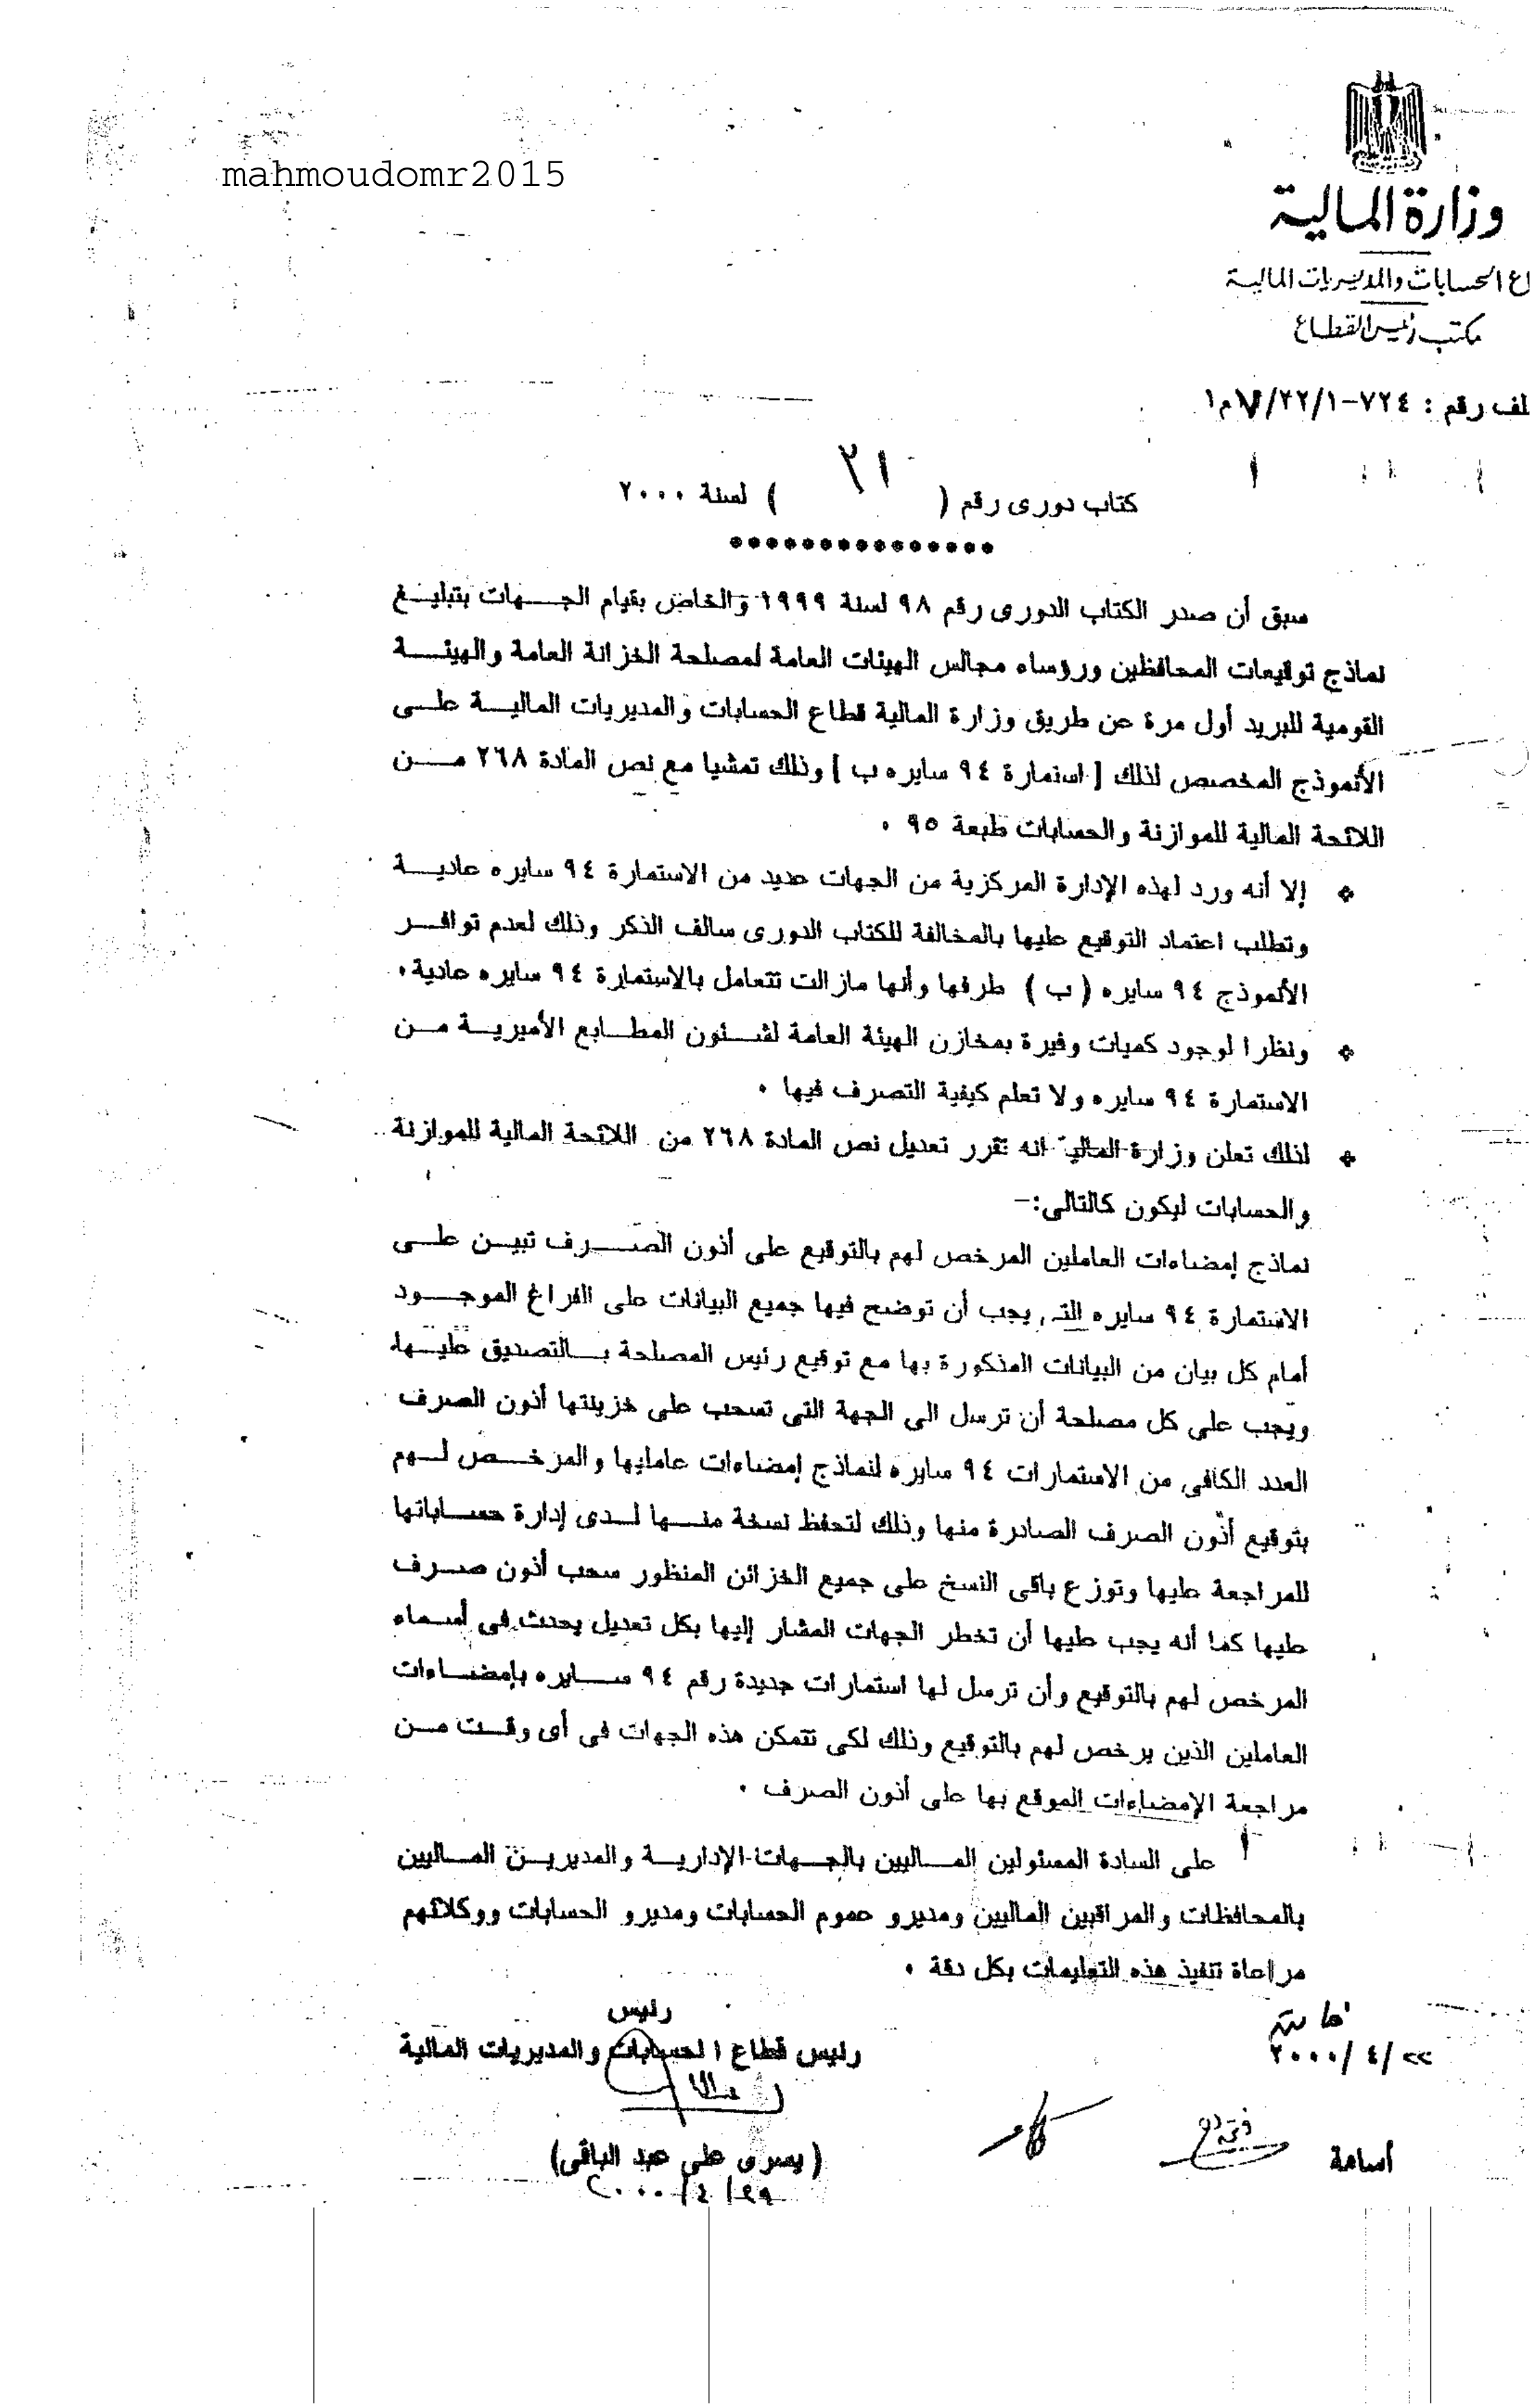 mahmoudomr2015
وزارة المالية
اع الحسابات والمديريات المالية
مكتب رئيس القطاع
لف رقم : ٧٢٤-٢٢/١/
كتاب دورى رقم ( ٢١ ) لسنة ٢٠٠٠
سبق أن صدر الكتاب الدورى رقم ٩٨ لسنة ١٩٩٩ والخاص بقيام الجهات بتبليغ
نماذج توقيعات المحافظين ورؤساء مجالس الهيئات العامة لمصلحة الخزانة العامة والهيئة
القومية للبريد أول مرة عن طريق وزارة المالية قطاع الحسابات والمديريات المالية على
الأنموذج المخصص لذلك [ استمارة ٩٤ سايره ب ] وذلك تمشيا مع نص المادة ٢٦٨ من
اللائحة المالية للموازنة والحسابات طبعة ٩٥ .
* إلا أنه ورد لهذه الإدارة المركزية من الجهات عديد من الاستمارة ٩٤ سايره عادية
وتطلب اعتماد التوقيع عليها بالمخالفة للكتاب الدورى سالف الذكر وذلك لعدم توافر
الأنموذج ٩٤ سايره ( ب ) طرفها وأنها مازالت تتعامل بالاستمارة ٩٤ سايره عادية .
* ونظرا لوجود كميات وفيرة بمخازن الهيئة العامة لشئون المطابع الأميرية من
الاستمارة ٩٤ سايره ولا تعلم كيفية التصرف فيها .
* لذلك تعلن وزارة المالية انه تقرر تعديل نص المادة ٢٦٨ من اللائحة المالية للموازنة
والحسابات ليكون كالتالى:-
نماذج إمضاءات العاملين المرخص لهم بالتوقيع على أذون الصرف تبين على
الاستمارة ٩٤ سايره التى يجب أن توضح فيها جميع البيانات على الفراغ الموجود
أمام كل بيان من البيانات المذكورة بها مع توقيع رئيس المصلحة بالتصديق عليها
ويجب على كل مصلحة أن ترسل الى الجهة التى تسحب على خزينتها أذون الصرف
العدد الكافى من الاستمارات ٩٤ سايره لنماذج إمضاءات عامليها والمرخص لهم
بتوقيع أذون الصرف الصادرة منها وذلك لتحفظ نسخة منها لدى إدارة حساباتها
للمراجعة عليها وتوزع باقى النسخ على جميع الخزائن المنظور سحب أذون صرف
عليها كما أنه يجب عليها أن تخطر الجهات المشار إليها بكل تعديل يحدث فى أسماء
المرخص لهم بالتوقيع وأن ترسل لها استمارات جديدة رقم ٩٤ سايره بإمضاءات
العاملين الذين يرخص لهم بالتوقيع وذلك لكى تتمكن هذه الجهات فى أى وقت من
مراجعة الإمضاءات الموقع بها على أذون الصرف .
على السادة المسئولين الماليين بالجهات الإدارية والمديرين الماليين
بالمحافظات والمراقبين الماليين ومديرو عموم الحسابات ومديرو الحسابات ووكلائهم
مراعاة تنفيذ هذه التعليمات بكل دقة .
رئيس
رئيس قطاع الحسابات والمديريات المالية
٢٠٠٠/٤/٢٢
(يسرى على عبد الباقى)
٢٠٠٠/٤/٢٩
أسامة